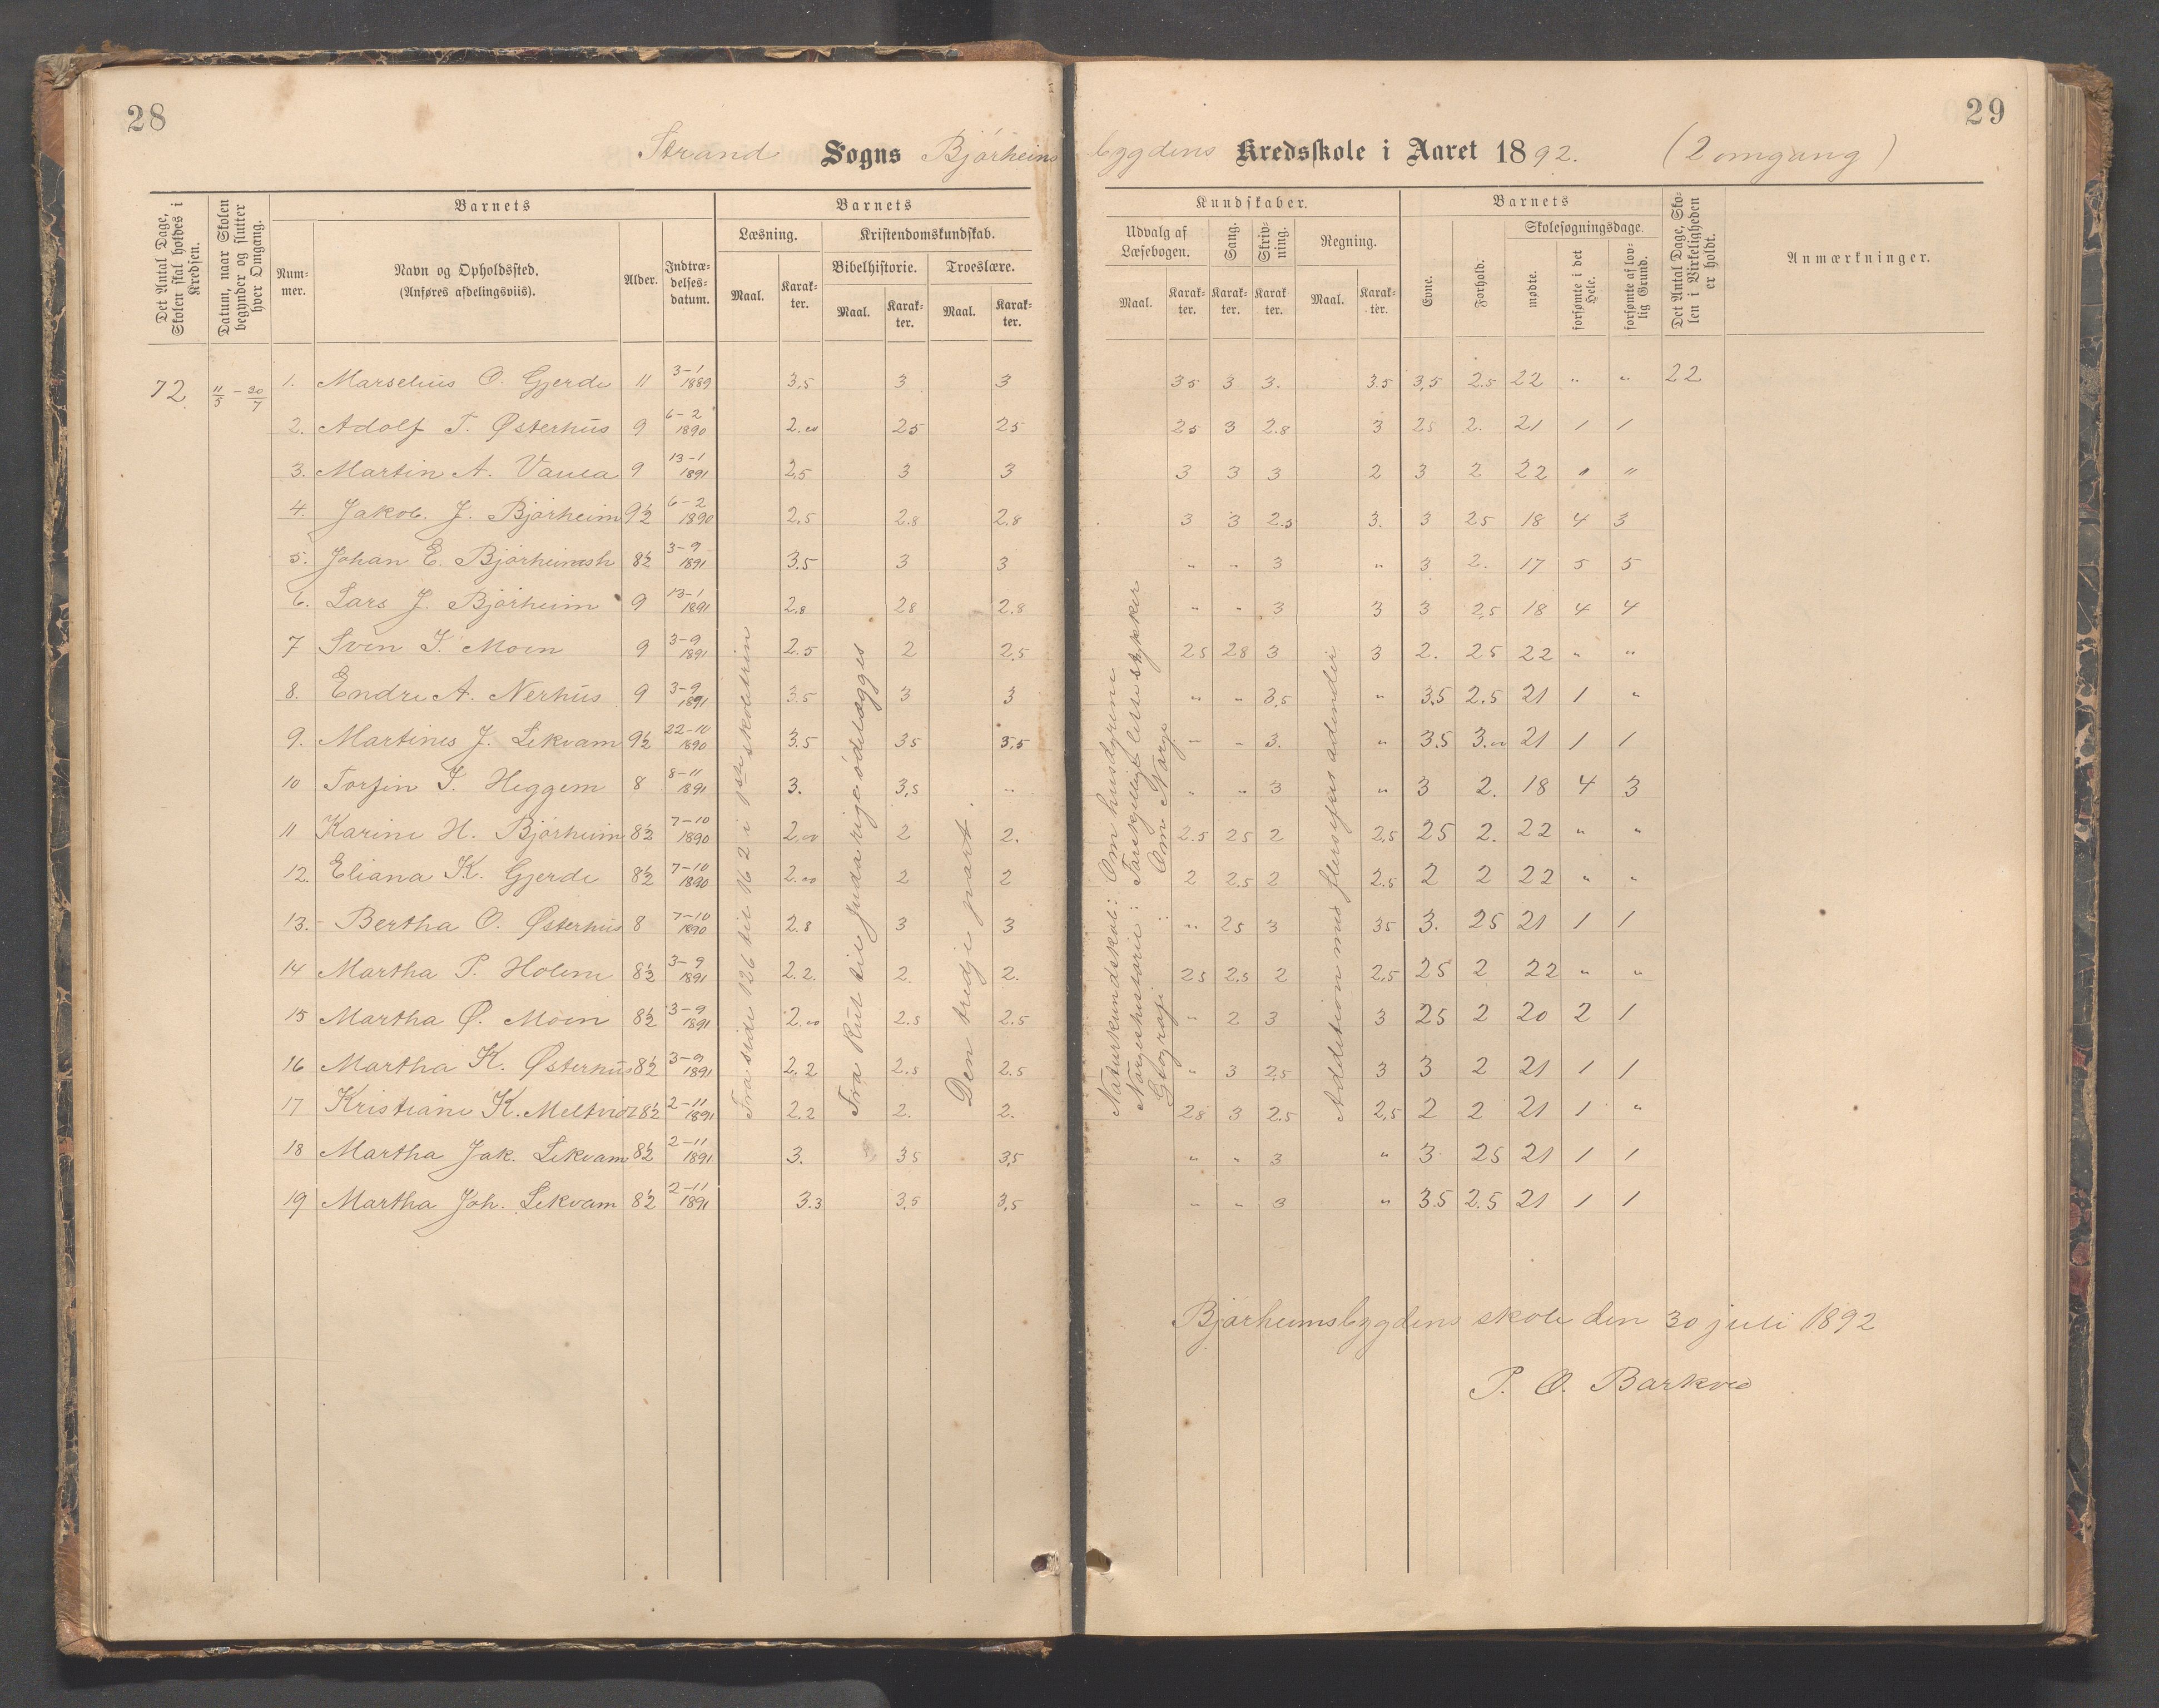 28
29
Strand Sogns Bjørheims bygdens Kredsskole i Aaret 1892. (2 omgang)
Det Antal Dage, Skolen skal holdes i Kredsen.
Datum, naar Skolen begynder og slutter hver Omgang.
Barnets
Barnets
Kundskaber.
Barnets
Num-mer.
Navn og Opholdssted.
(Anføres afdelingsviis).
Alder.
Indtræ-delses-datum.
Læsning.
Kristendomskundskab.
Bibelhistorie.
Troeslære.
Maal.
Karak-ter.
Maal.
Karak-ter.
Maal.
Karak-ter.
Udvalg af Læsebogen.
Sang.
Skriv-ning.
Regning.
Maal.
Karak-ter.
Karak-ter.
Karak-ter.
Maal.
Karak-ter.
Evne.
Forhold.
Skolesøgningsdage.
mødte.
forsømte i det Hele.
forsømte af lov-lig Grund.
Det Antal Dage, Sko-len i Virkeligheden er holdt.
Anmærkninger.
72 11/5 - 30/7 1. Marselius O. Gjerde 11 3-1 1889 3,5 3 3 35 3 3. 3.5 3,5 2.5 22 " " 22
2. Adolf T. Østerhus 9 6-2 1890 2.00 25 25 25 3 2.8 3 25 2. 21 1 1
3. Martin A. Vaula 9 13-1 1891 2,5 3 3 3 3 3 2 3 2 22 " "
4. Jakob. J. Bjørheim 9½ 6-2 1890 2.5 2.8 2.8 3 3 2.5 3. 3 25 18 4 3
5. Johan E. Bjørheimsh 8½ 3-9 1891 3.5 3 3 " " 3 " 3 2. 17 5 5
6. Lars J. Bjørheim 9 13-1 1891 2.8 28 2.8 " " 3 3 3 2,5 18 4 4
7 Sven I. Moen 9 3-9 1891 2.5 2 2,5 25 28 3 3 2. 25 22 " "
8. Endre A. Nerhus 9 3-9 1891 3.5 3 3 " " 3,5 " 3.5 2.5 21 1 "
9. Martines J. Lekvam 9½ 22-10 1890 3.5 35 3,5 " " 3. " 3.5 3.00 21 1 1
10 Torfin I. Heggem 8 8-11 1891 3. 3,5 " " " 3 " 3 2. 18 4 3
11 Karine H. Bjørheim 8½ 7-10 1890 2,00 2 2. 2.5 25 2 2,5 25 2. 22 " "
12. Eliana K. Gjerde 8½ 7-10 1890 2.00 2 2 2 2.5 2 2.5 2 2 22 " "
13. Bertha O. Østerhus 8 7-10 1890 2.8 3 3 " 25 3 35 3. 25 21 1 1
14 Martha P. Holene 8½ 3-9 1891 2.2. 2. 2. 25 2.5 2 2,5 25 2 22 " "
15 Martha Ø. Moen 8½ 3-9 1891 2.00 2.5 2.5 " 2 3 3 25 2 20 2 1
16 Martha K. Østerhus 8½ 3-9 1891 2.2 2.5 2.5 " 3 2,5 3 3 2 21 1 1
17 Kristiane K. Meltvid 8½ 2-11 1891 2,2 2. 2. 28 3 2.5 2,5 2 2 21 1 "
18 Martha Jak. Lekvam 8½ 2-11 1891 3. 35 3,5 " " 3 " 3 25 21 1 1
19 Martha Joh. Lekvam 8½ 2-11 1891 3.3 3,5 3,5 " " 3 " 3.5 2.5 21 1 1
Fra side 126 til 162 i 1ste skoletrin
Fra Rut til Juda rige ødelægges
Den tredje part.
Naturkundskab: Om husdyrene
Norgeshistorie: Forskjellige læsestykker
Geografi: Om Norge
Addition med flersifrede addender
Bjørheimsbygdens skole den 30 juli 1892
P. O. Barkved